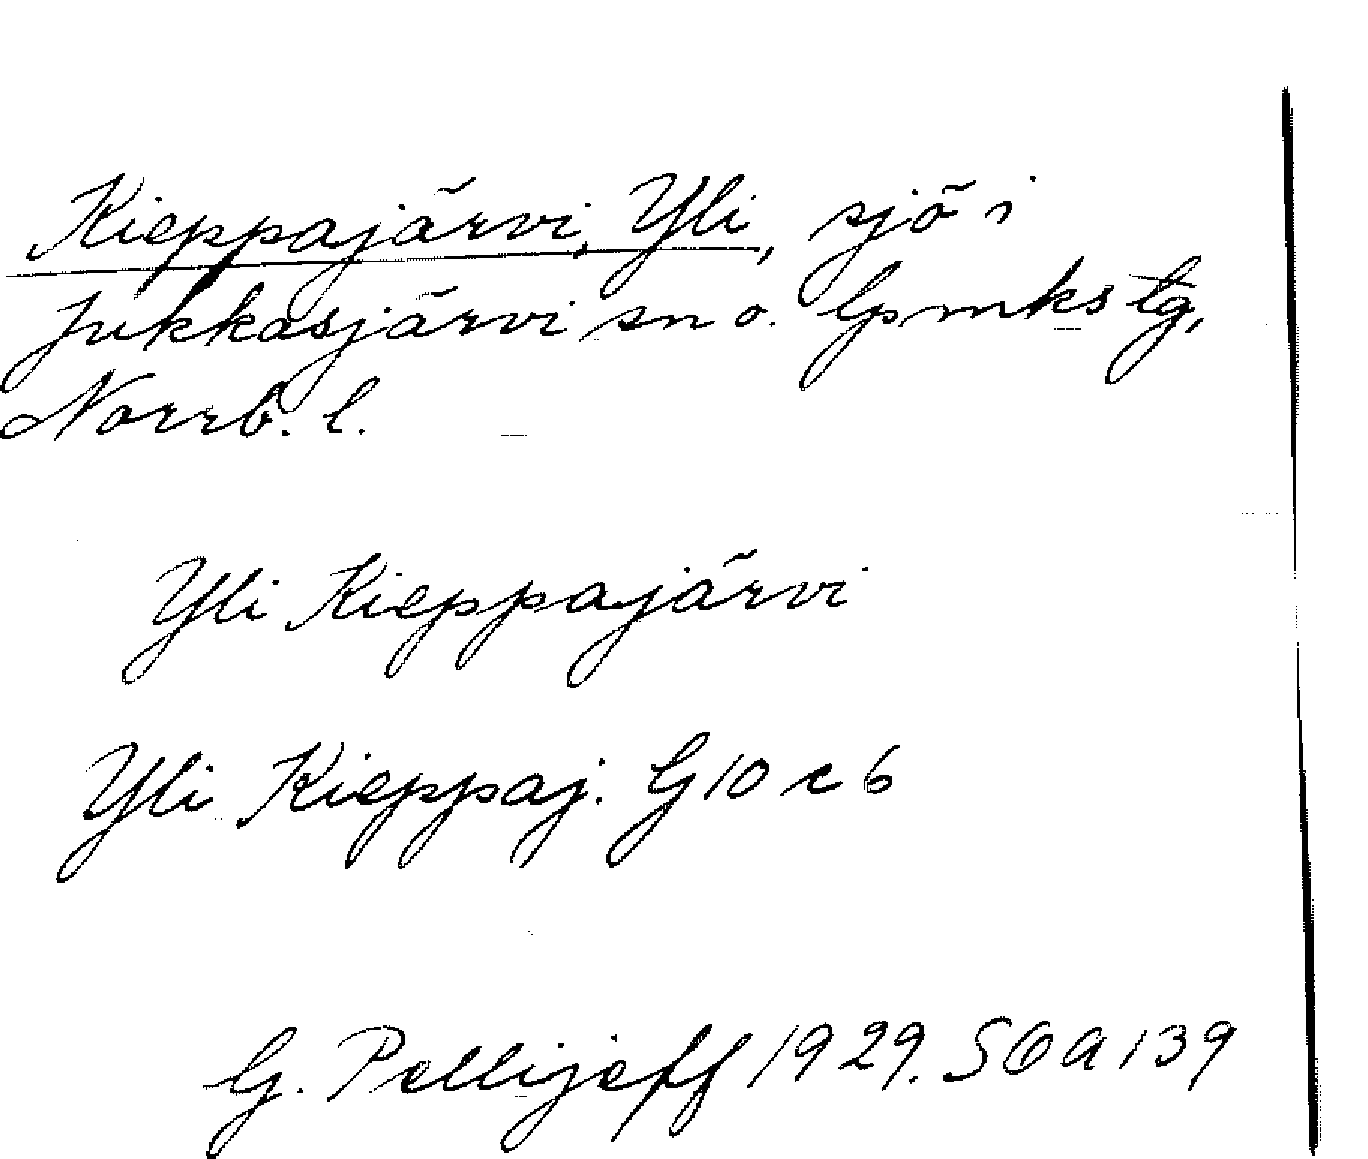 Kieppajärvi, Yli, sjö i
Jukkasjärvi sn o. lpmks tg,
Norrb. l.
Yli Kieppajärvi
Yli Kieppaj. G 10 c 6
G. Pellijeff 1929. SOA 139